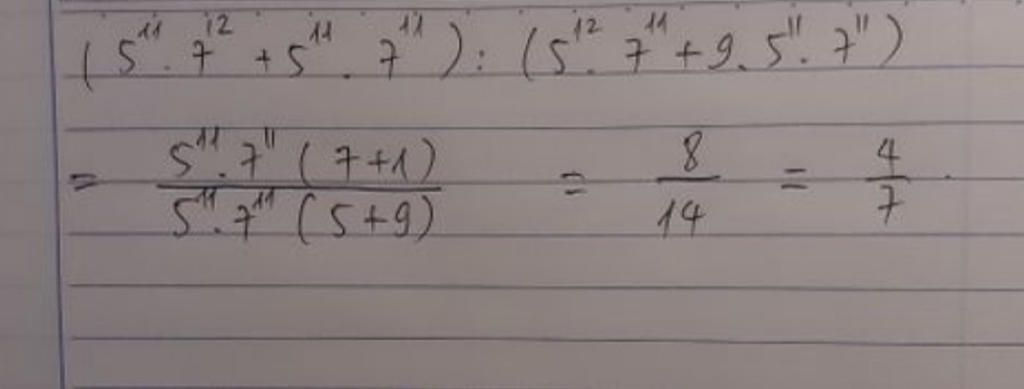 (5¹¹. 7¹² + 5¹¹. 7¹¹) : (5¹². 7¹¹ + 9. 5¹¹. 7¹¹)
= \frac{5¹¹. 7¹¹ (7+1)}{5¹¹. 7¹¹ (5+9)} = \frac{8}{14} = \frac{4}{7}.